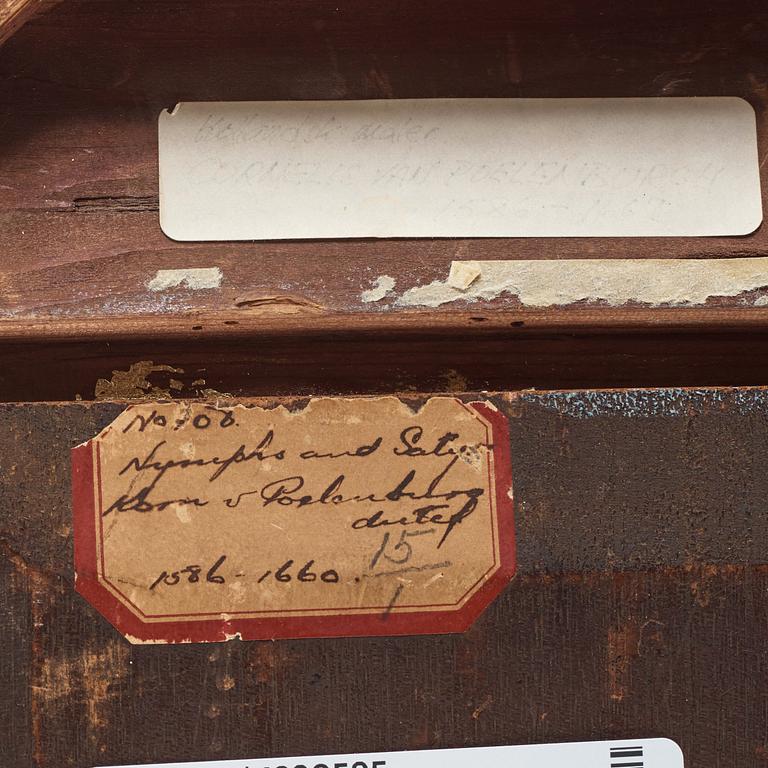 Hollandsk maler
CORNELIS VAN POELENBURGH
1586 - 16
No. 06.
Nymphs and Satyr
Korn v Poelenburg
dutch
15
1586 - 1660.
1